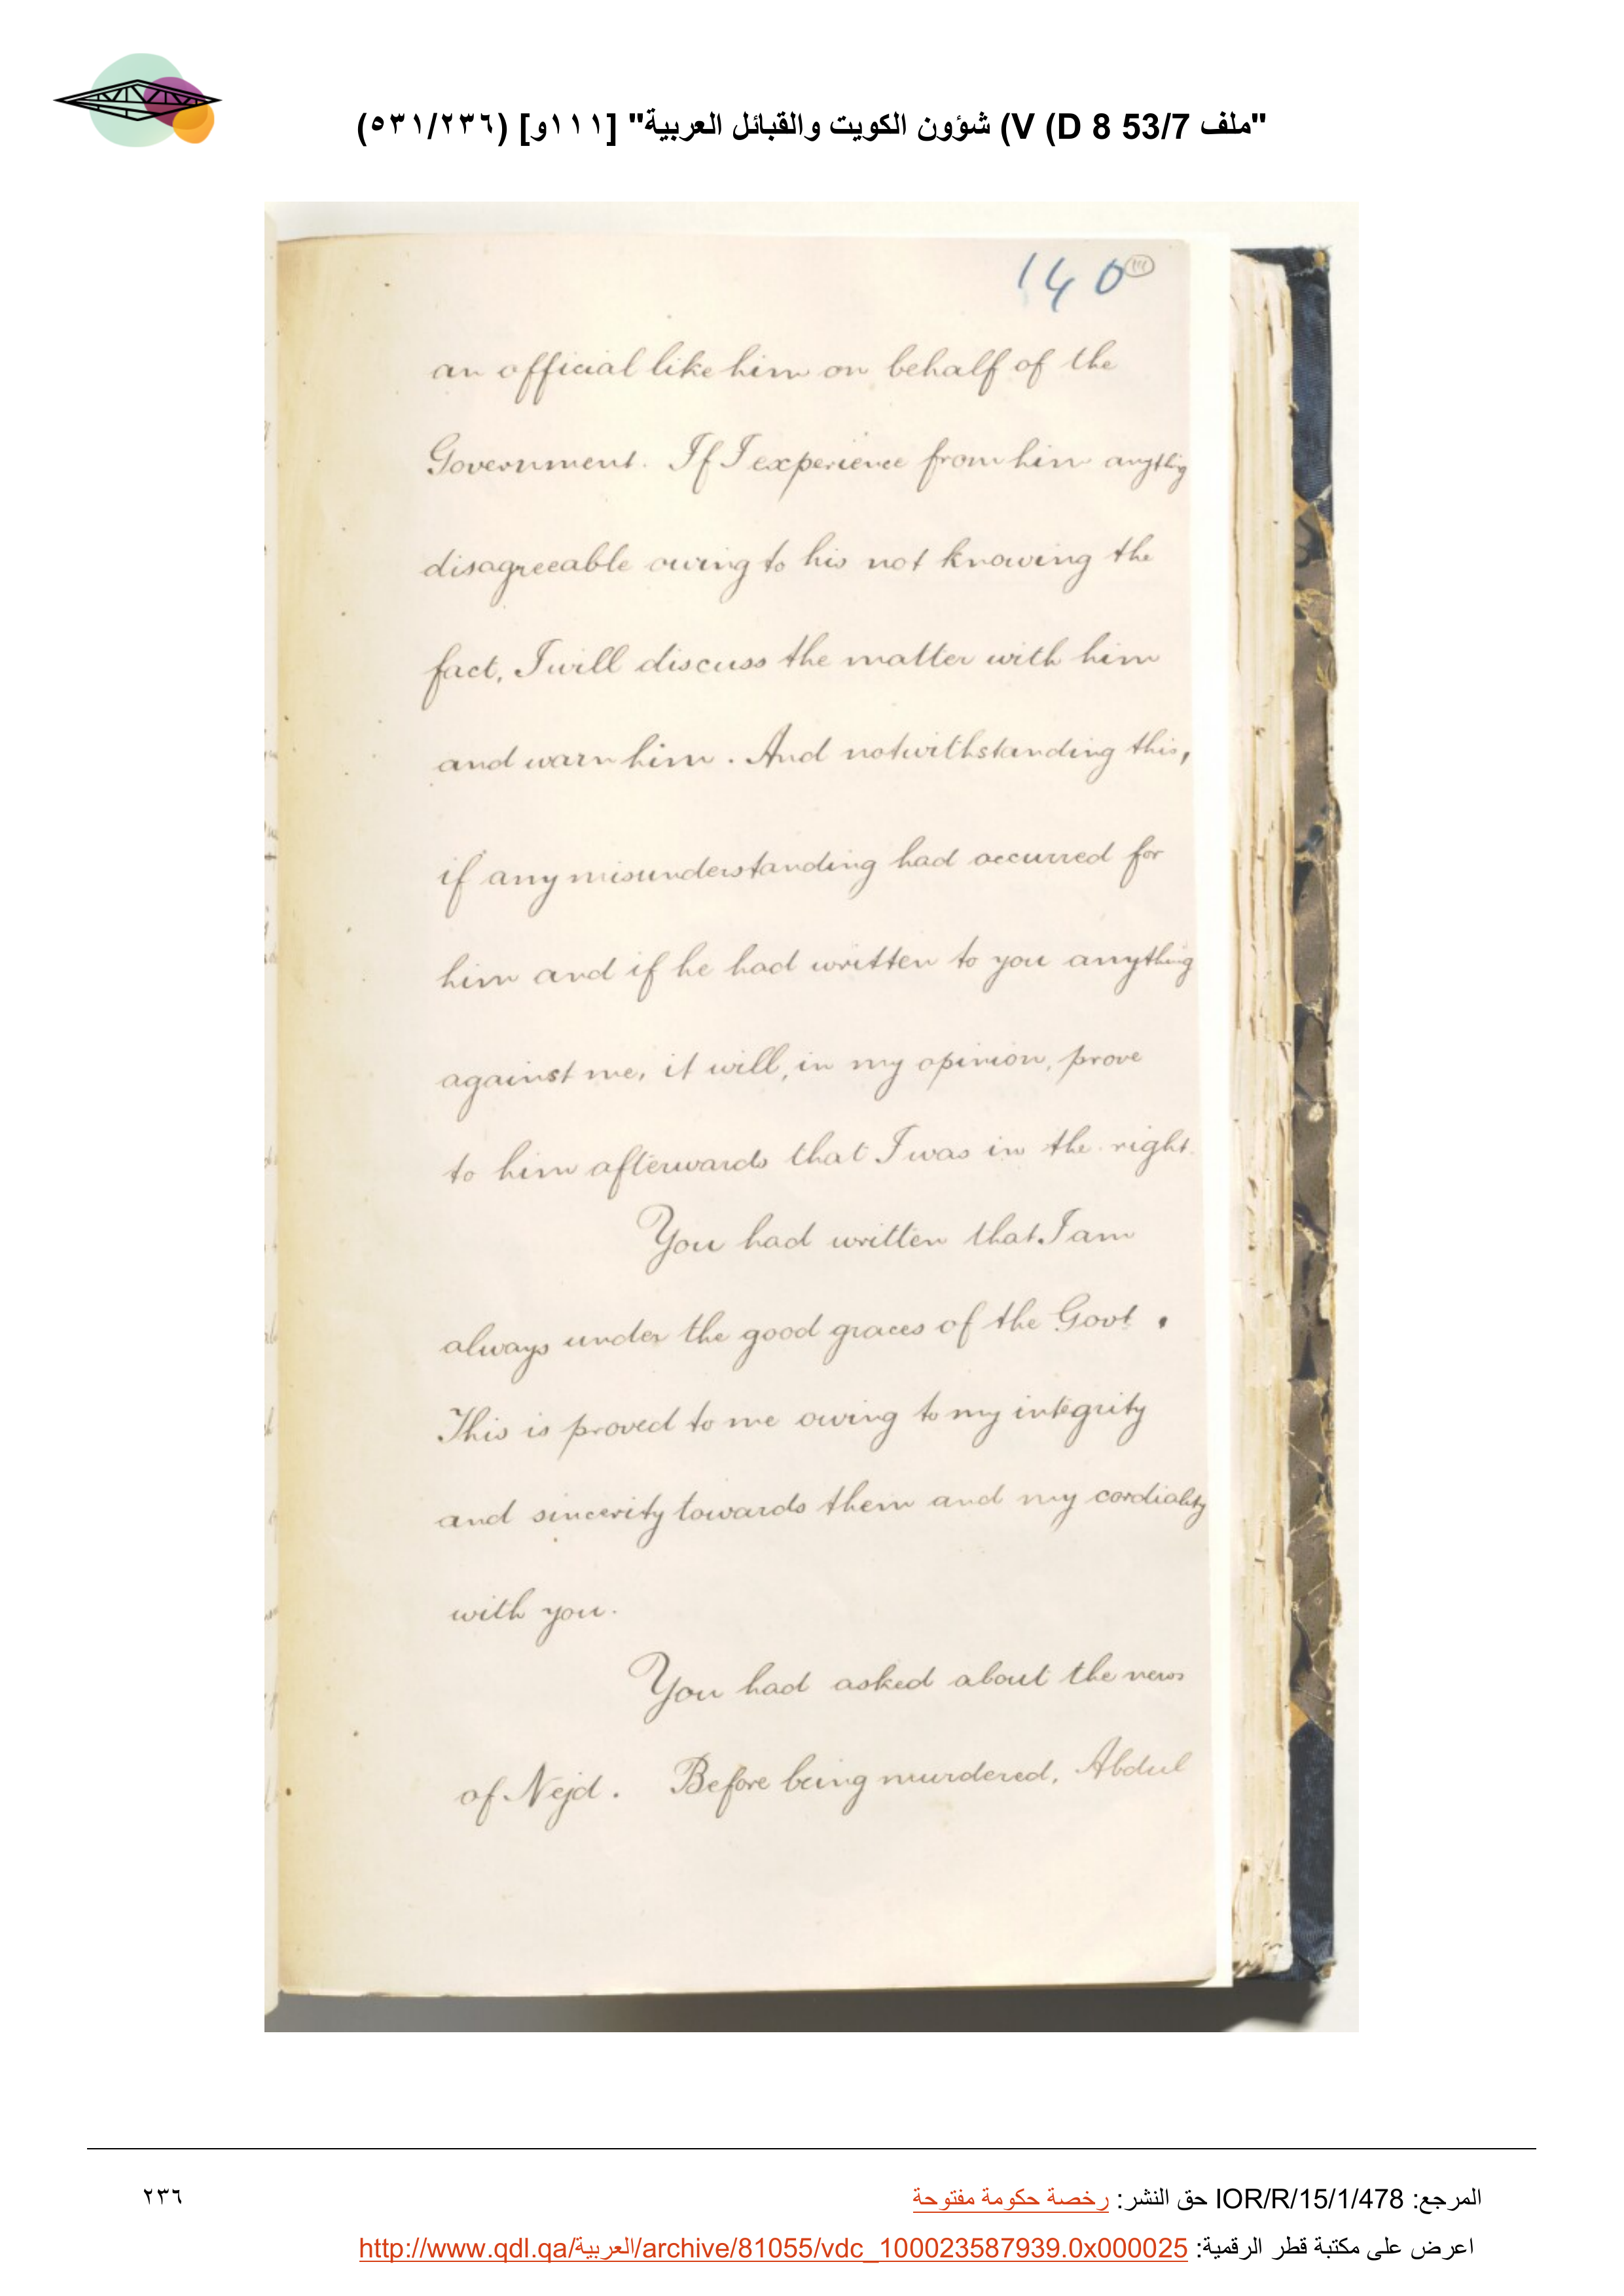 "ملف 53/7 V (D 8) شؤون الكويت والقبائل العربية" [١١١و] (٥٣١/٢٣٦)
140
111
an official like him on behalf of the
Government. If I experience from him anything
disagreeable owing to his not knowing the
fact, I will discuss the matter with him
and warn him. And notwithstanding this,
if any misunderstanding had occurred for
him and if he had written to you anything
against me, it will, in my opinion, prove
to him afterwards that I was in the right.
You had written that I am
always under the good graces of the Govt.
This is proved to me owing to my integrity
and sincerity towards them and my cordiality
with you.
You had asked about the news
of Nejd. Before being murdered, Abdul
المرجع: IOR/R/15/1/478 حق النشر: رخصة حكومة مفتوحة
٢٣٦
اعرض على مكتبة قطر الرقمية: http://www.qdl.qa/العربية/archive/81055/vdc_100023587939.0x000025